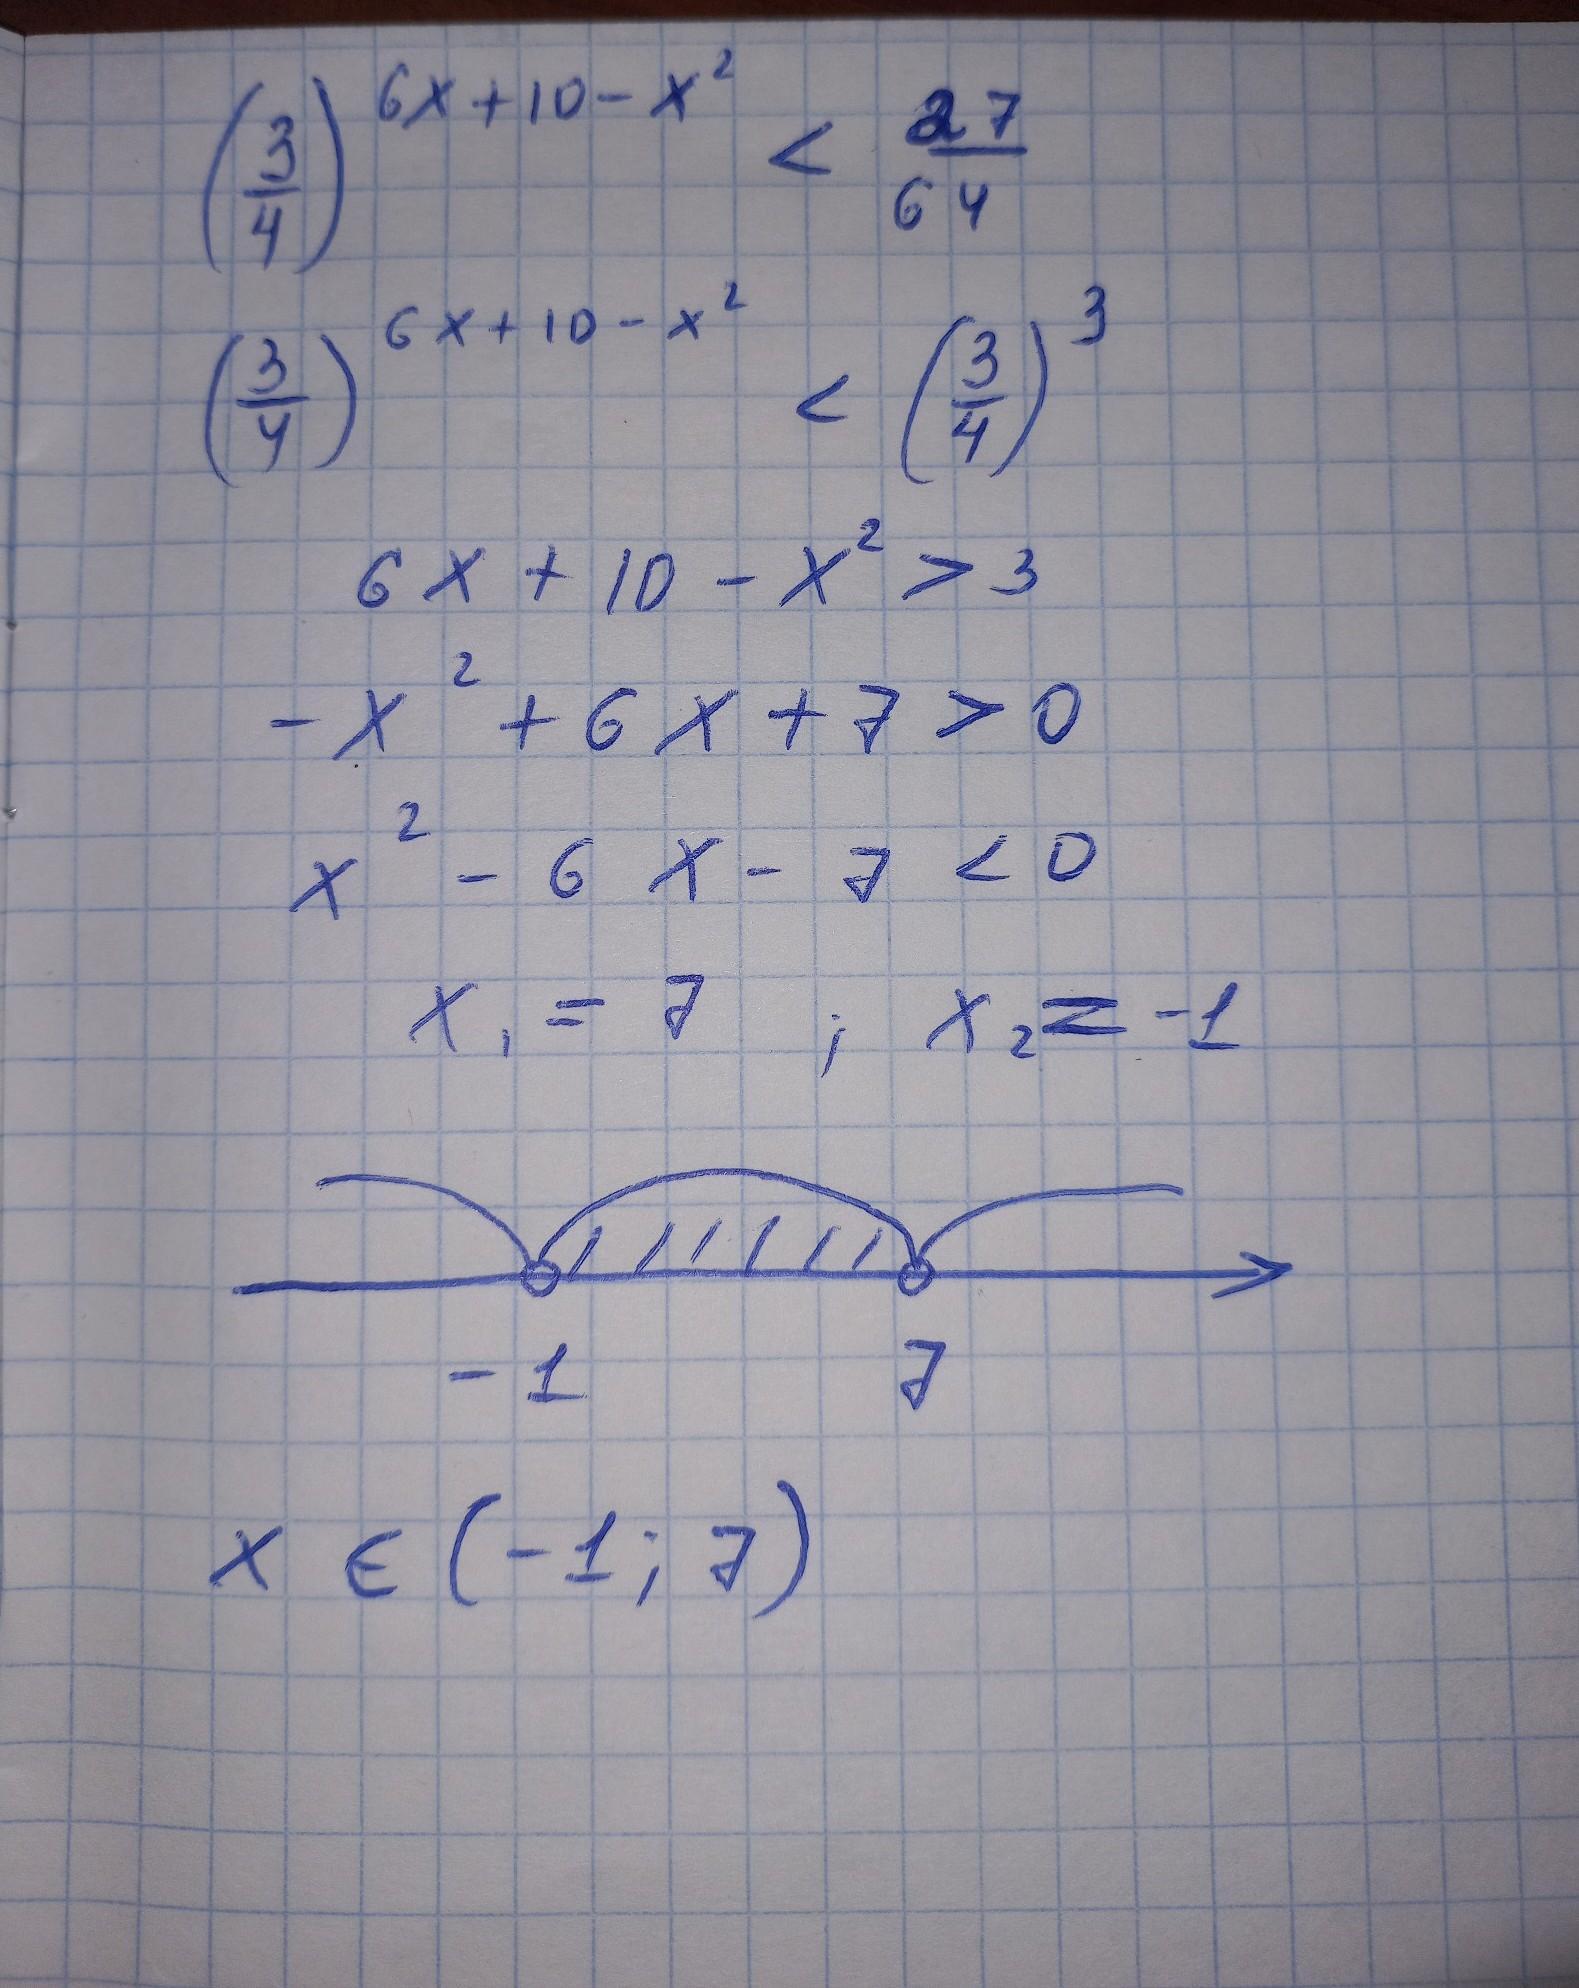 (3/4)^(6x+10-x²) < 27/64
(3/4)^(6x+10-x²) < (3/4)³
6x + 10 - x² > 3
-x² + 6x + 7 > 0
x² - 6x - 7 < 0
x₁ = 7 ; x₂ = -1
-1 7
x ∈ (-1; 7)